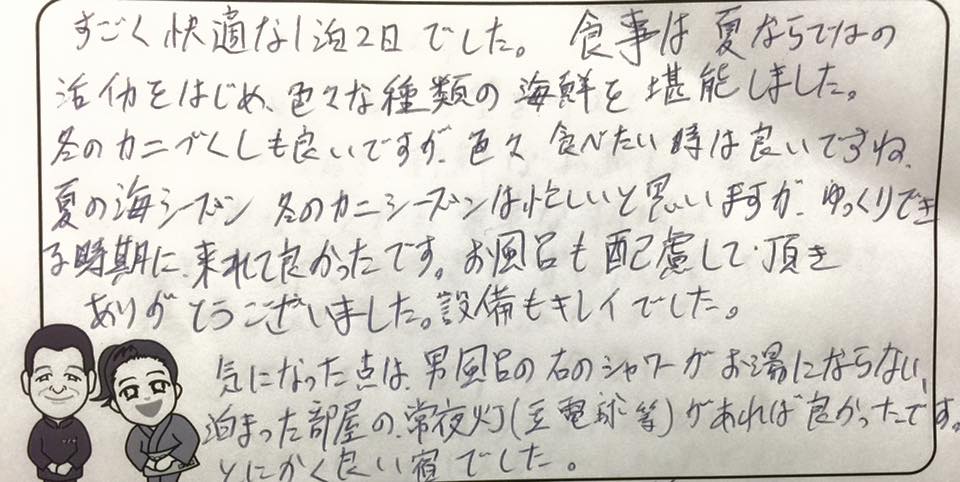 すごく快適な1泊2日でした。 食事は夏ならではの
活イカをはじめ、色々な種類の海鮮を堪能しました。
冬のカニづくしも良いですが、色々食べたい時は良いですね、
夏の海シーズン 冬のカニシーズンは忙しいと思いますが、ゆっくりでき
る時期に、来れて良かったです。お風呂も配慮して頂き
ありがとうございました。設備もキレイでした。
気になった点は、男風呂の右のシャワーがお湯にならない、
泊まった部屋の、常夜灯(豆電球等)があれば良かったです。
とにかく良い宿でした。